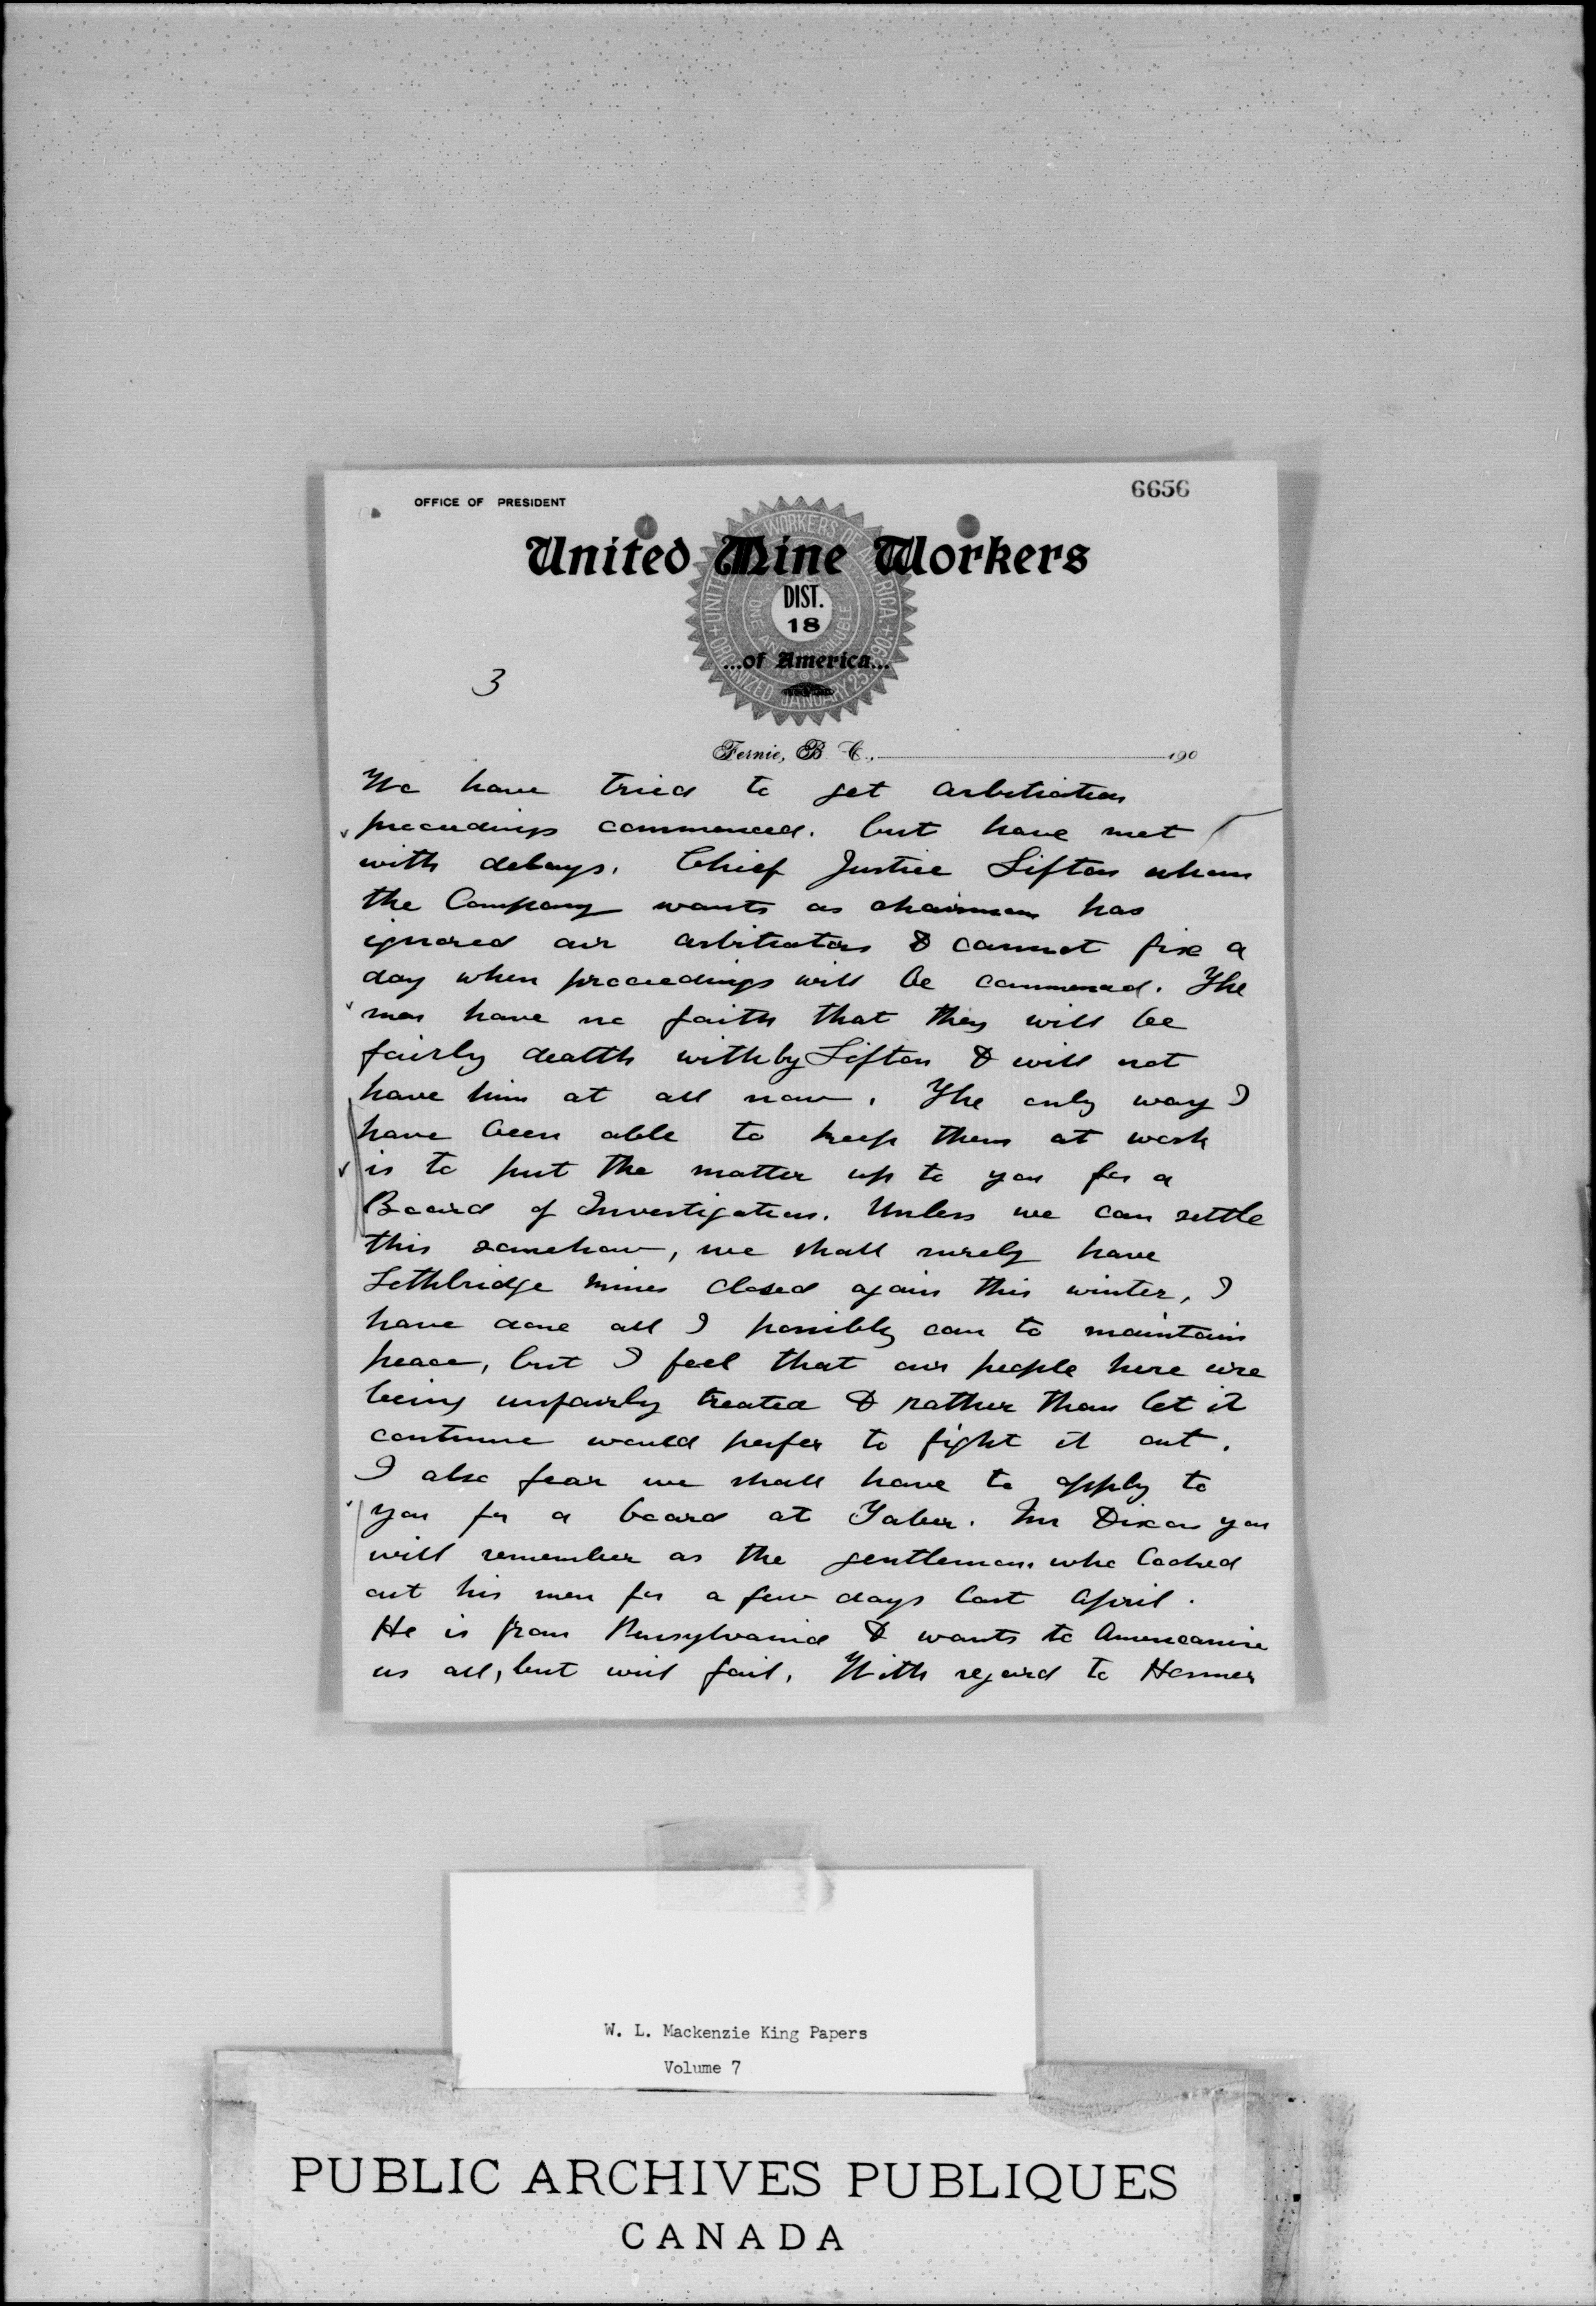 6656
OFFICE OF PRESIDENT
United Mine Workers
UNITED MINE WORKERS OF AMERICA
ORGANIZED JANUARY 25, 1890
DIST.
18
...of America...
3
Fernie, B. C., 190
We have tried to get arbitration
proceedings commenced. but have met
with delays. Chief Justice Sifton whom
the Company wants as chairman has
ignored our arbitrators & cannot fix a
day when proceedings will be commenced. The
men have no faith that they will be
fairly dealth with by Sifton & will not
have him at all now. The only way I
have been able to keep them at work
is to put the matter up to you for a
Board of Investigation. Unless we can settle
this somehow, we shall surely have
Lethbridge mines closed again this winter, I
have done all I possibly can to maintain
peace, but I feel that our people here are
being unfairly treated & rather than let it
continue would perfer to fight it out.
I also fear we shall have to apply to
you for a board at Taber. Mr Dixon you
will remember as the gentleman who locked
out his men for a few days last April.
He is from Pensylvania & wants to Americanise
us all, but will fail. With regard to Hosmer
W. L. Mackenzie King Papers
Volume 7
PUBLIC ARCHIVES PUBLIQUES
CANADA